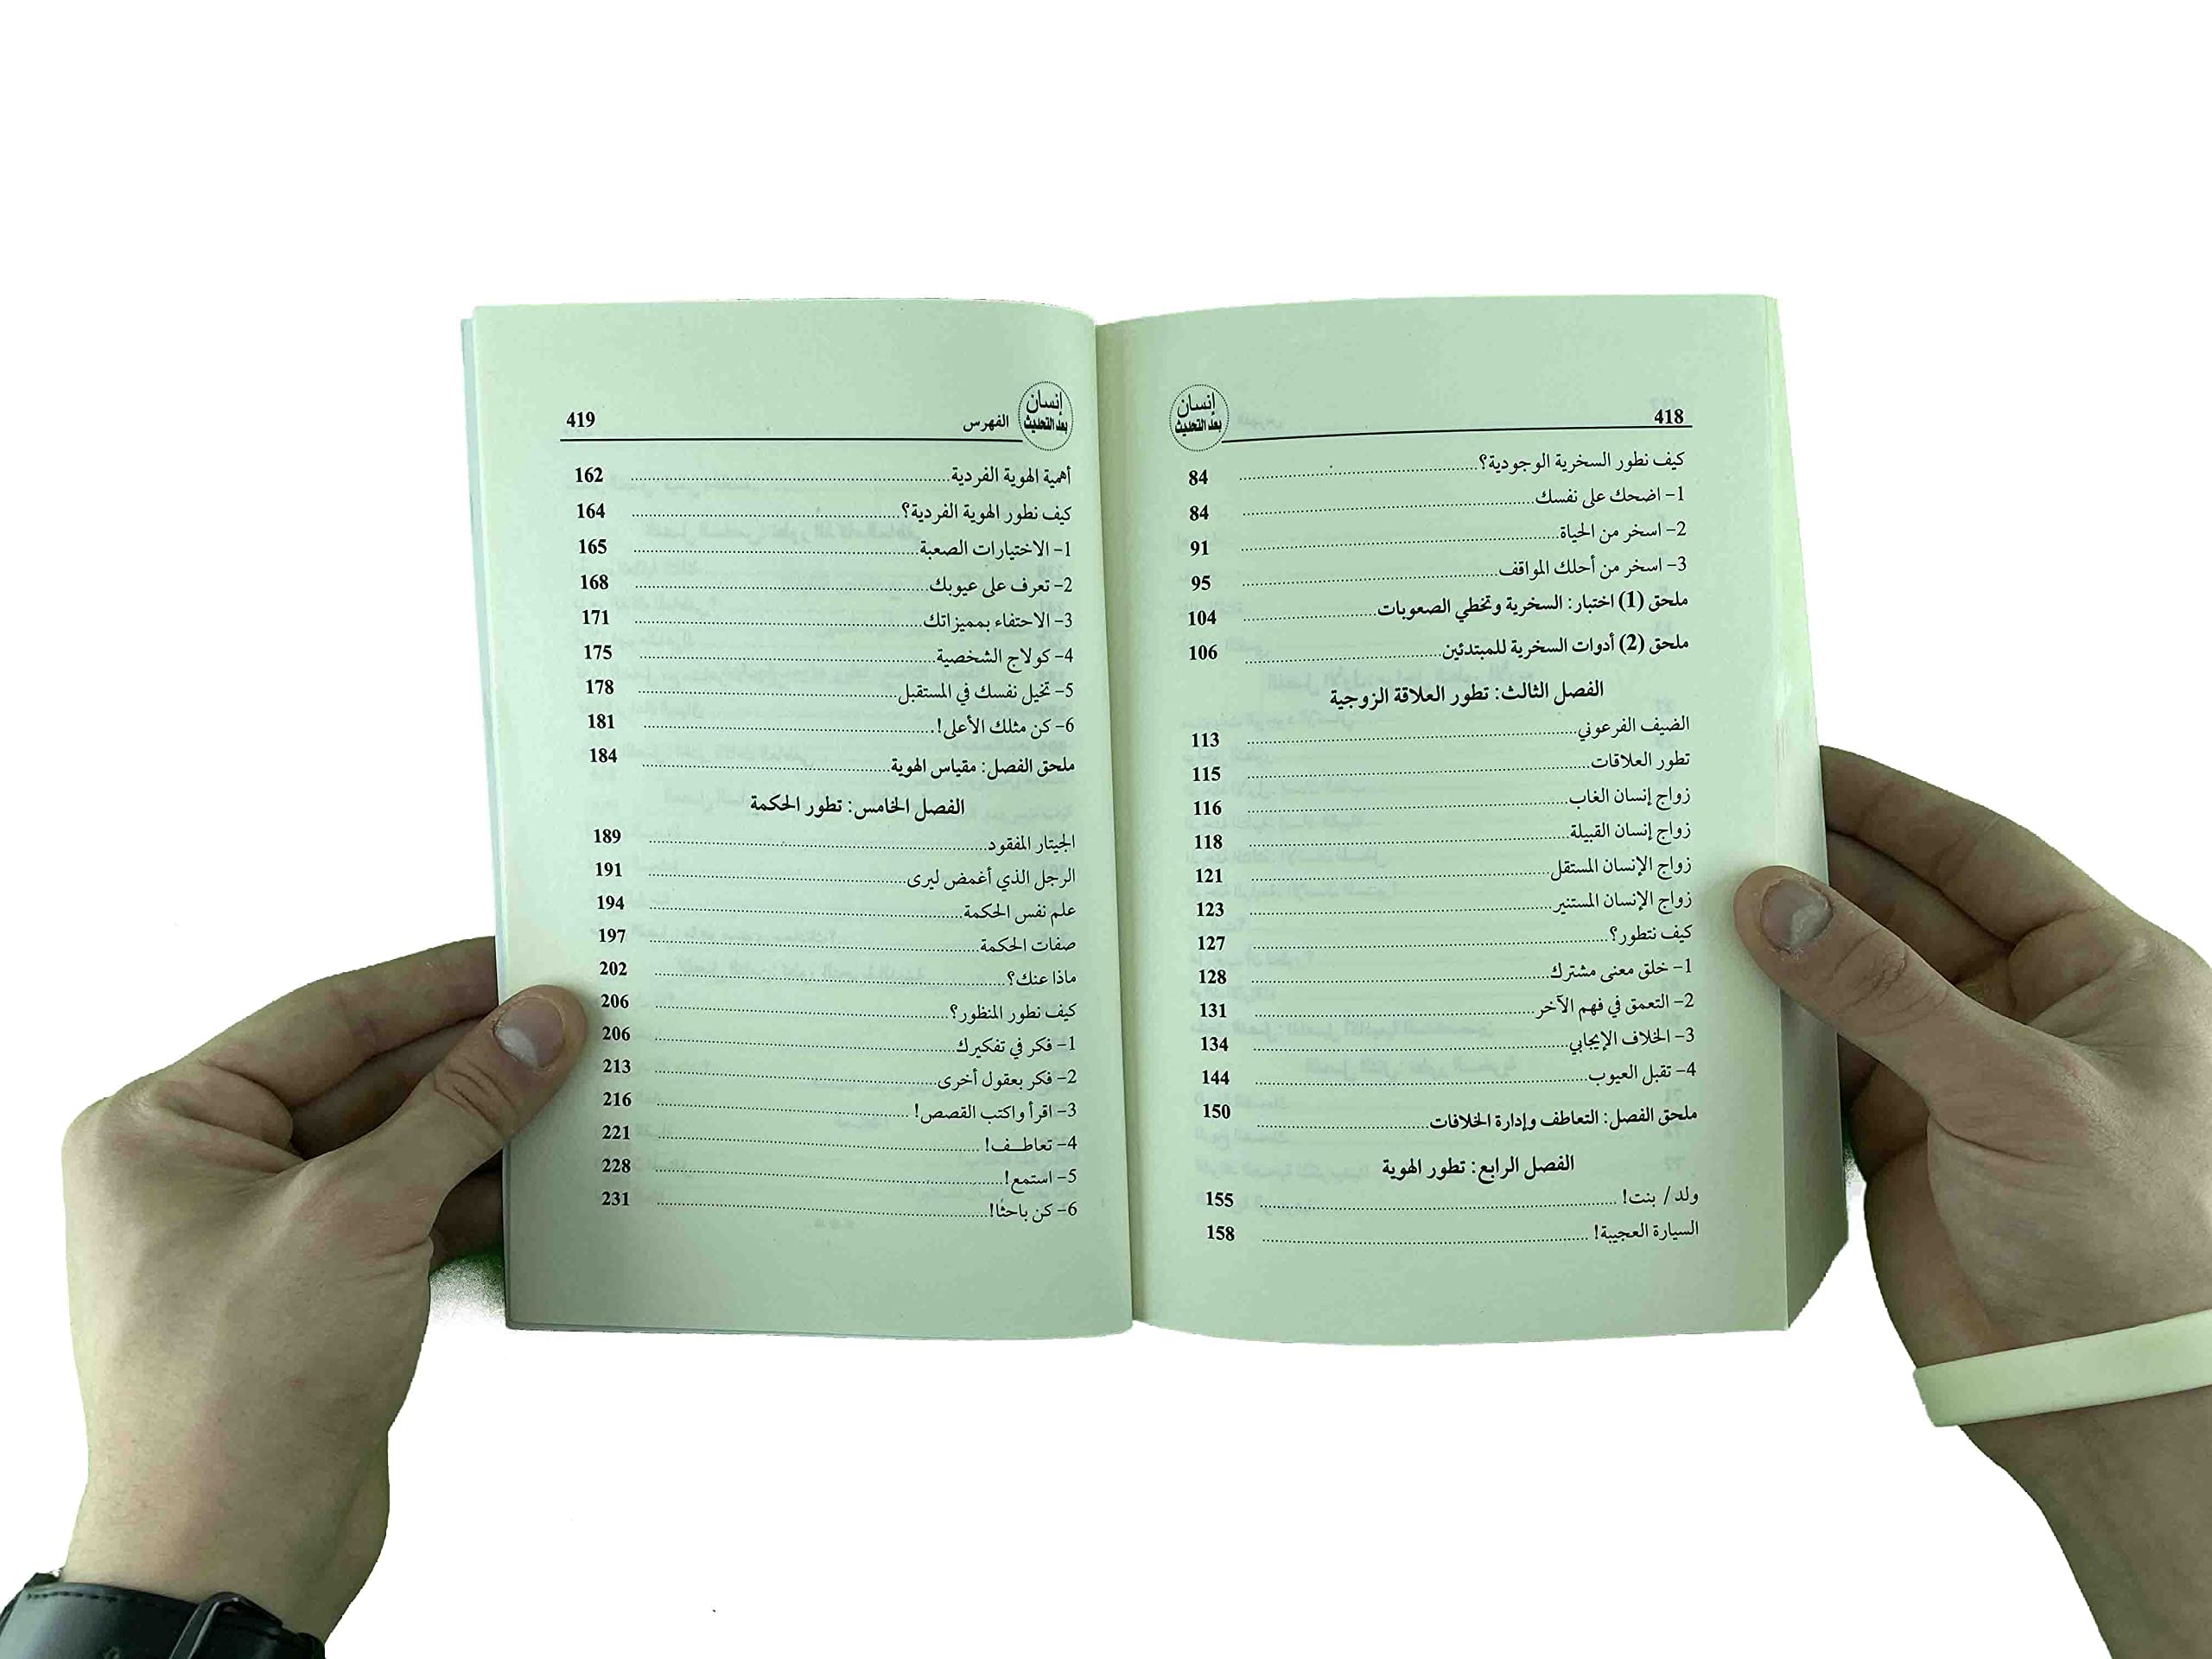 418
إنسان
بعد التحديث
كيف نطور السخرية الوجودية؟ 84
1- اضحك على نفسك 84
2- اسخر من الحياة 91
3- اسخر من أحلك المواقف 95
ملحق (1) اختبار: السخرية وتخطي الصعوبات 104
ملحق (2) أدوات السخرية للمبتدئين 106
الفصل الثالث: تطور العلاقة الزوجية
الضيف الفرعوني 113
تطور العلاقات 115
زواج إنسان الغاب 116
زواج إنسان القبيلة 118
زواج الإنسان المستقل 121
زواج الإنسان المستنير 123
كيف نتطور؟ 127
1- خلق معنى مشترك 128
2- التعمق في فهم الآخر 131
3- الخلاف الإيجابي 134
4- تقبل العيوب 144
ملحق الفصل: التعاطف وإدارة الخلافات 150
الفصل الرابع: تطور الهوية
ولد/ بنت! 155
السيارة العجيبة! 158
إنسان
بعد التحديث
الفهرس 419
أهمية الهوية الفردية 162
كيف نطور الهوية الفردية؟ 164
1- الاختيارات الصعبة 165
2- تعرف على عيوبك 168
3- الاحتفاء بمميزاتك 171
4- كولاج الشخصية 175
5- تخيل نفسك في المستقبل 178
6- كن مثلك الأعلى! 181
ملحق الفصل: مقياس الهوية 184
الفصل الخامس: تطور الحكمة
الجيتار المفقود 189
الرجل الذي أغمض ليرى 191
علم نفس الحكمة 194
صفات الحكمة 197
ماذا عنك؟ 202
كيف نطور المنظور؟ 206
1- فكر في تفكيرك 206
2- فكر بعقول أخرى 213
3- اقرأ واكتب القصص! 216
4- تعاطـف! 221
5- استمع! 228
6- كن باحثًا! 231